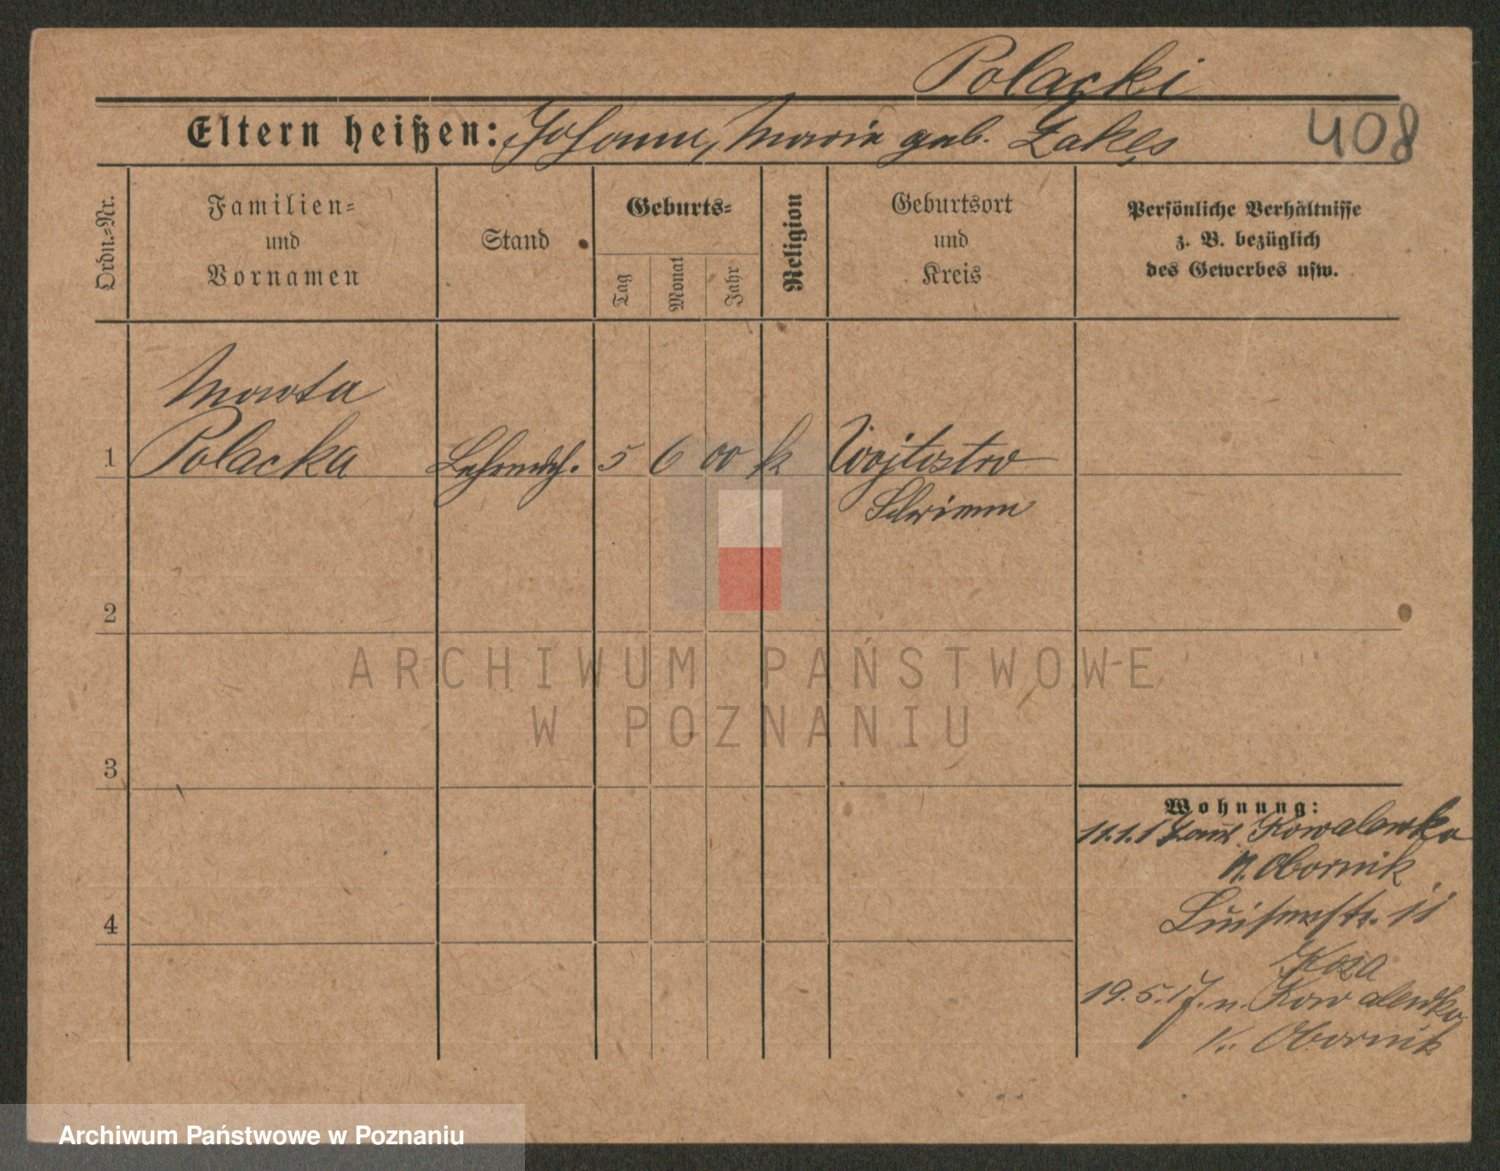 Polacki
Eltern heißen: Johann, Maria geb. Zakęs
408
Ordn.-Nr.
Familien-
und
Vornamen
Stand
Geburts-
Tag
Monat
Jahr
Religion
Geburtsort
und
Kreis
Persönliche Verhältnisse
z. B. bezüglich
des Gewerbes usw.
Marta
1 Polacka 5 6 00 k Wojtostwo
Schrimm
2
ARCHIWUM PAŃSTWOWE
W POZNANIU
3
Wohnung:
Kowalewko
Obornik
4
Luisenstr. 11
Koza
19.5.17. n. Kowalewko
Kr. Obornik
Archiwum Państwowe w Poznaniu